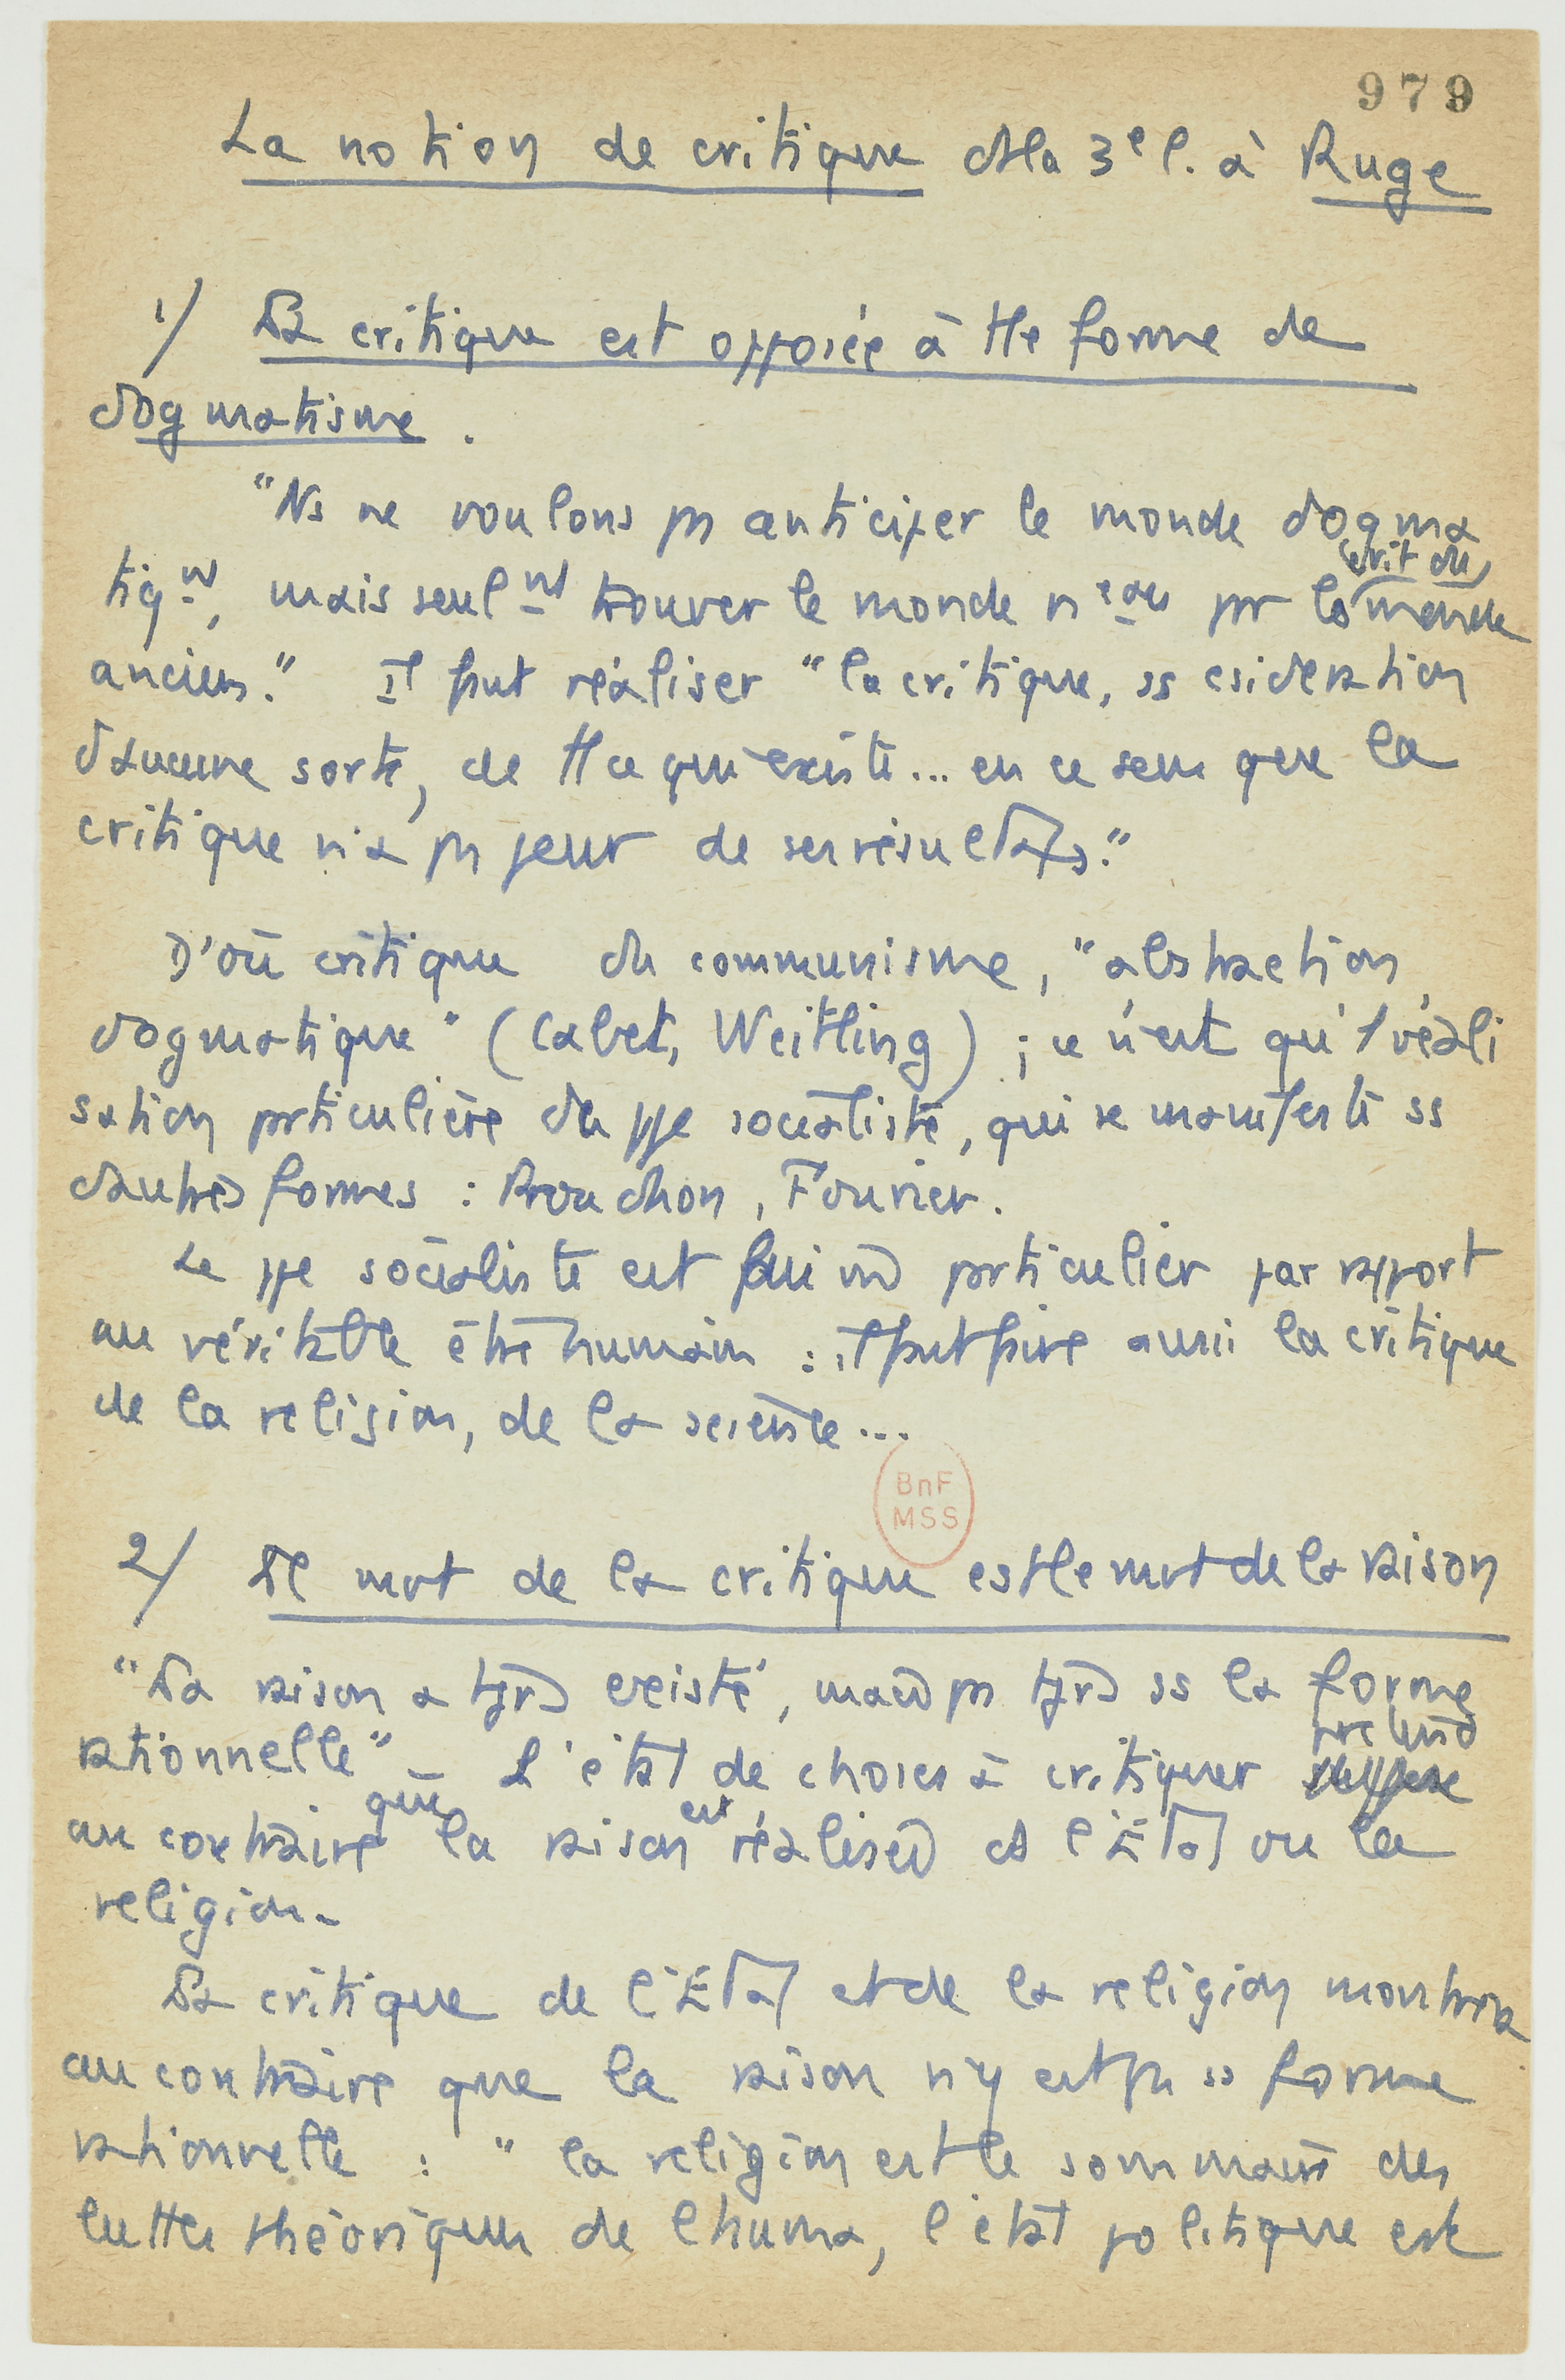 979
La notion de critique ds la 3e l. à Ruge
1/ La critique est opposée à tte forme de
dogmatisme.
"Ns ne voulons ps anticiper le monde dogma
tiqnt, mais seulnt trouver le monde nveau pr la crit du monde
ancien." Il faut réaliser "la critique, ss csideration
d'aucune sorte, de tt ce qui existe... en ce sens que la
critique n'a ps peur de ses résultats."
D'où critique du communisme, "abstraction
dogmatique" (Cabet, Weitling) ; ce n'est qu'1 réali
sation prticulière du ppe socialiste, qui se manifeste ss
d'autres formes : Proudhon, Fourier.
Le ppe socialiste est lui ms prticulier par rapport
au véritable être humain : il faut faire aussi la critique
de la religion, de la science...
BnF
MSS
2/ Le mot de la critique est le mot de la raison
"La raison a tjrs existé, mais ps tjrs ss la forme
rationnelle" – L'état de choses à critiquer prétend
au contraire que la raison est réalisée ds l'Etat ou la
religion.
La critique de l'Etat et de la religion montrera
au contraire que la raison n'y est ps ss forme
rationnelle : "la religion est le sommaire des
luttes théoriques de l'huma, l'état politique est